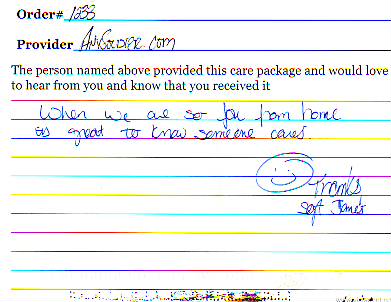 Order# 1233
Provider AnySoldier.com
The person named above provided this care package and would love
to hear from you and know that you received it
When we are so far from home
its great to know someone cares.
Thanks
Sgt James